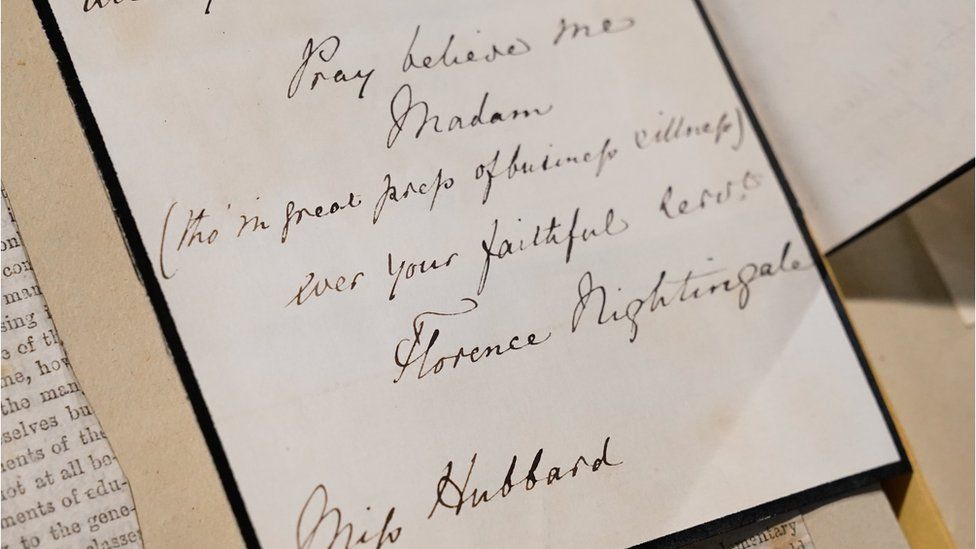 Pray believe me
Madam
(tho' in great press of business & illness)
ever your faithful servt.
Florence Nightingale
Miss Hubbard
con
man
sing
e of th
me, how
the man
selves bu
ents of the
not at all be
ments of edu-
to the gene-
classes
mentary